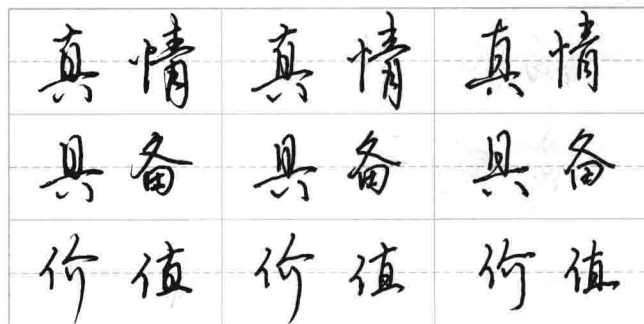 真情 真情 真情
具备 具备 具备
价值 价值 价值